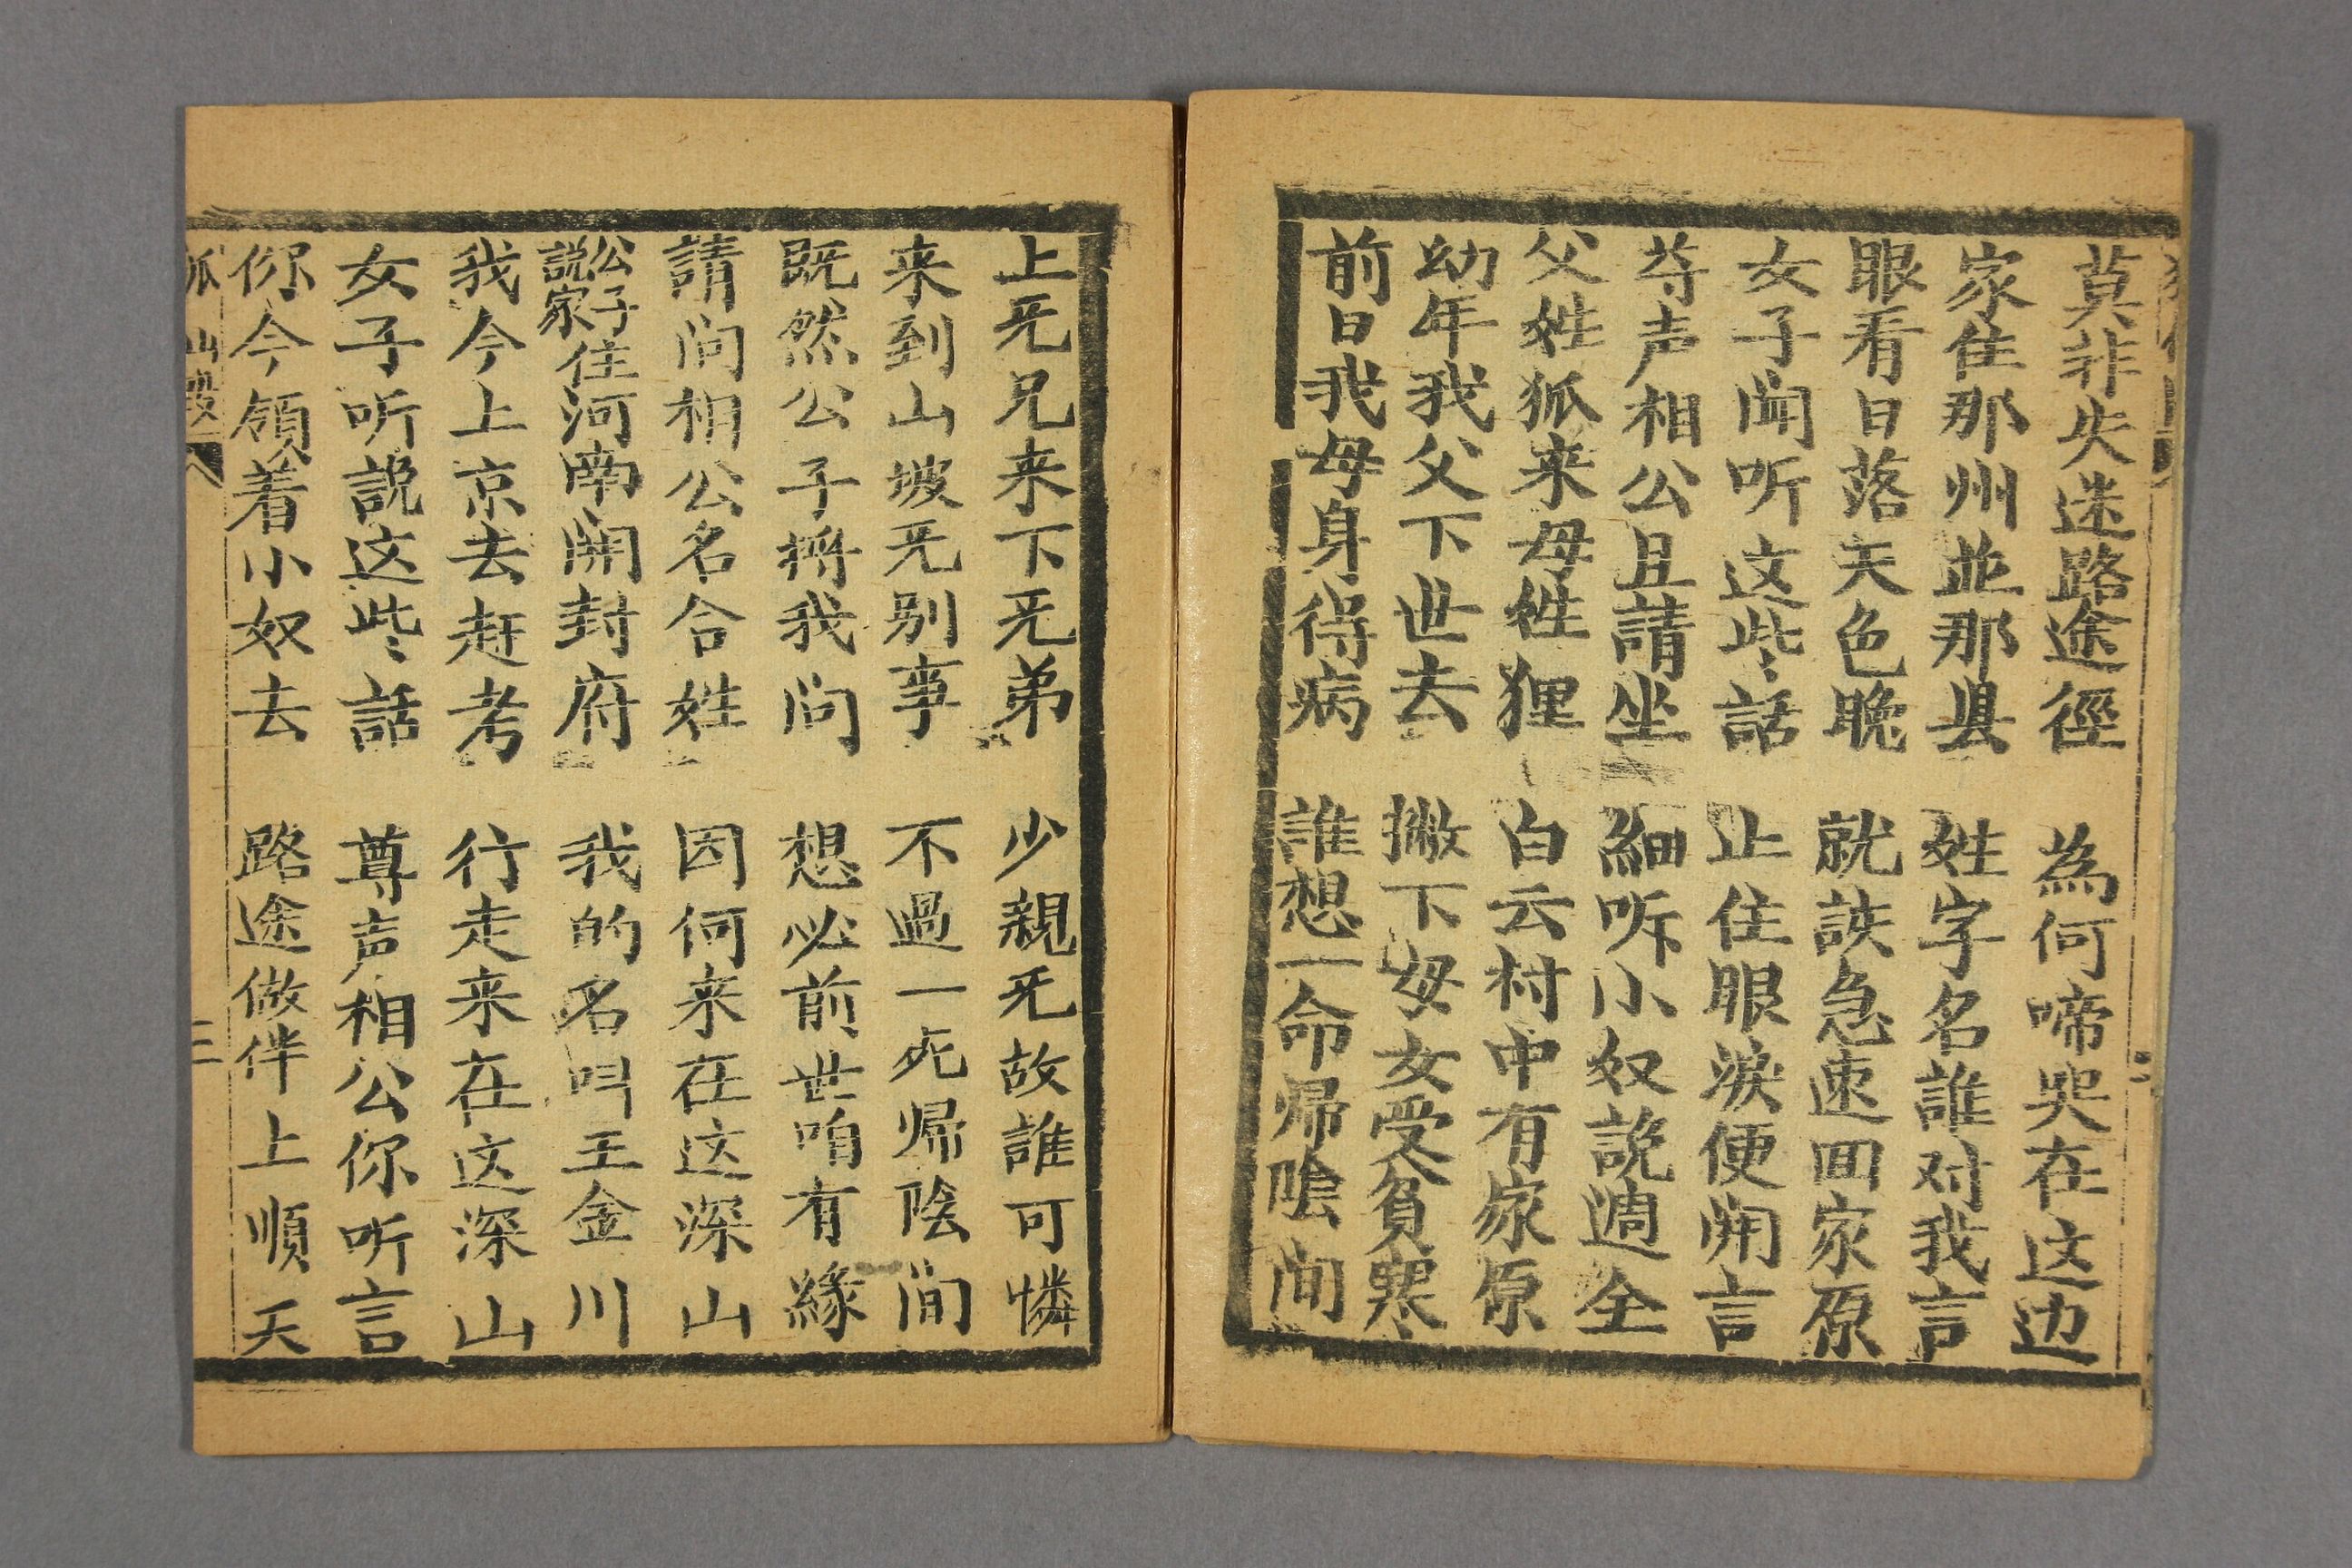 莫非失迷路途徑　為何啼哭在这边
家住那州並那县　姓字名誰对我言
眼看日落天色晚　就該急速回家原
女子闻听这些話　止住眼淚便開言
尊声相公且請坐　細听小奴說週全
父姓狐来母姓狸　白云村中有家原
幼年我父下世去　撇下母女受貧寒
前日我母身得病　誰想一命帰陰间
上旡兄来下旡弟　少親旡故誰可憐
来到山坡旡别事　不過一死帰陰间
既然公子将我问　想必前世咱有緣
請问相公名合姓　因何来在这深山
公子說家住河南開封府　我的名叫王金川
我今上京去赶考　行走来在这深山
女子听說这些話　尊声相公你听言
你今領着小奴去　路途做伴上順天
狐 山 段　三